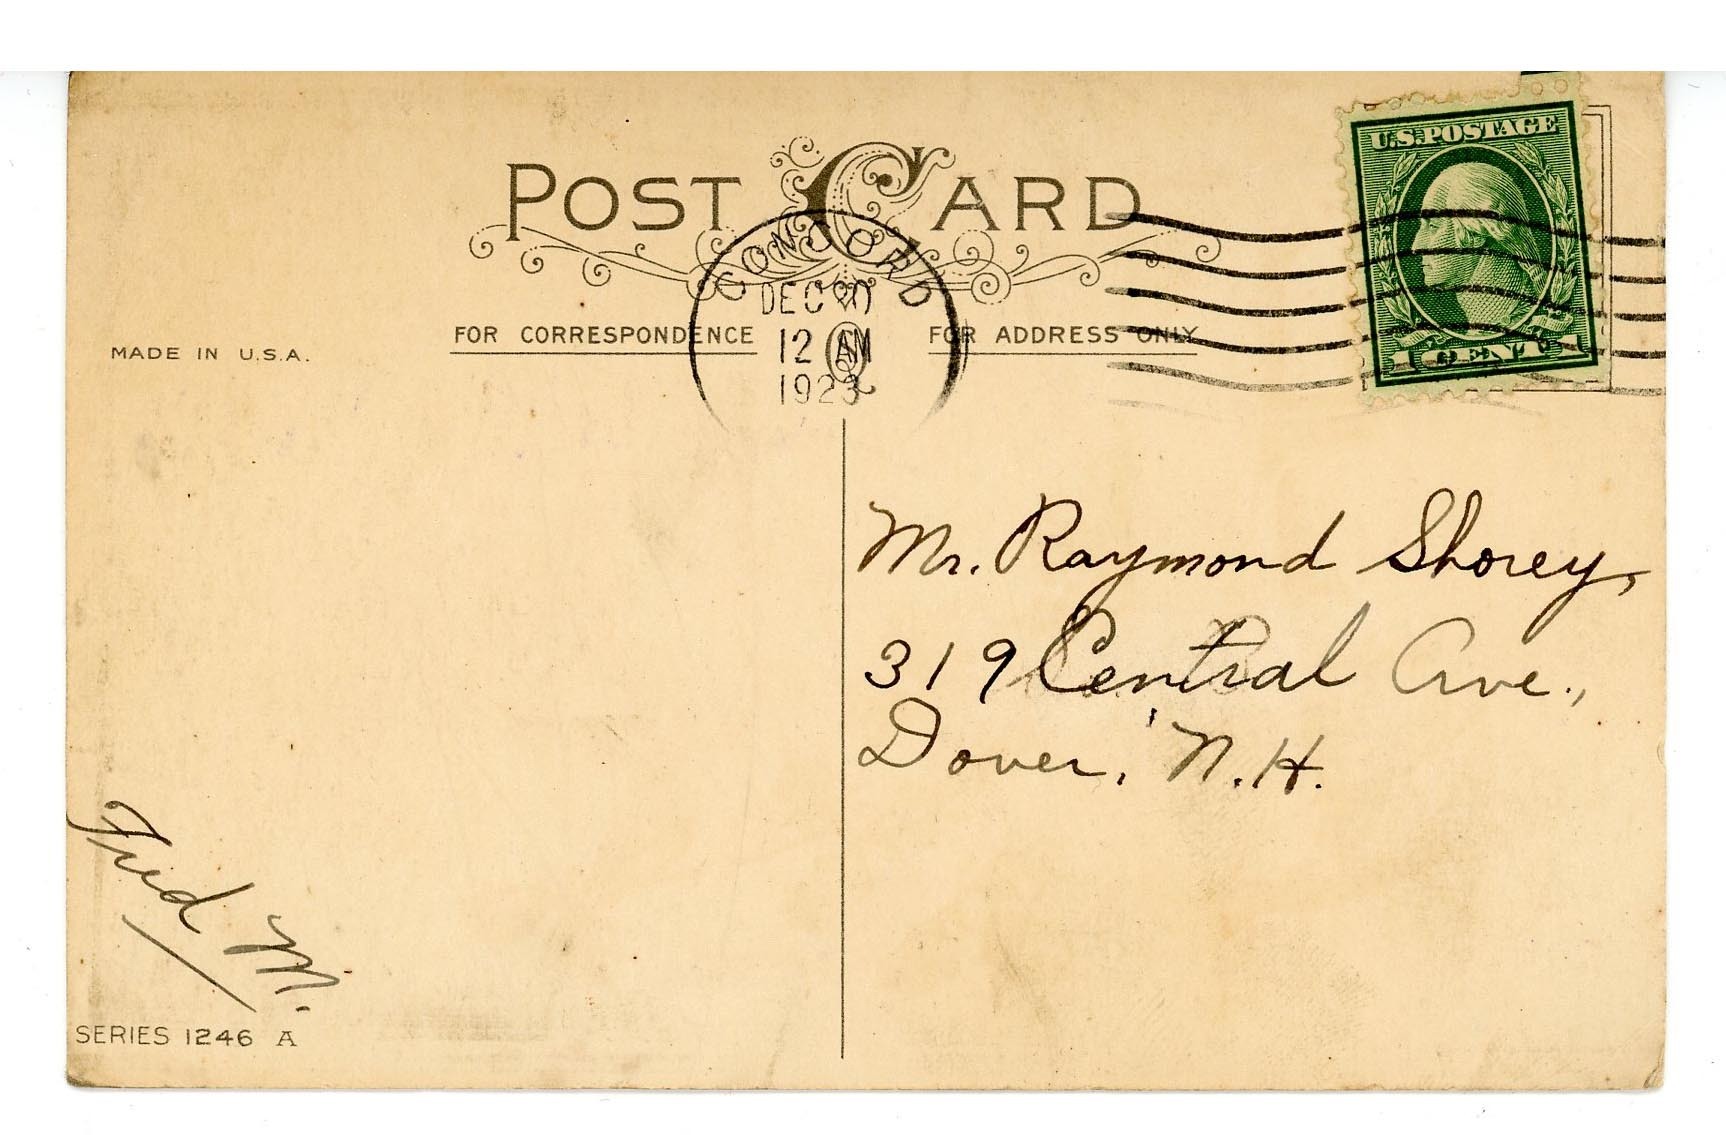 U.S. POSTAGE
1 CENT 1
POST CARD
CONCORD
DEC 20
12 AM
1923
MADE IN U.S.A.
FOR CORRESPONDENCE
FOR ADDRESS ONLY
Mr. Raymond Shorey,
319 Central Ave.,
Dover, N.H.
Fred M.
SERIES 1246 A